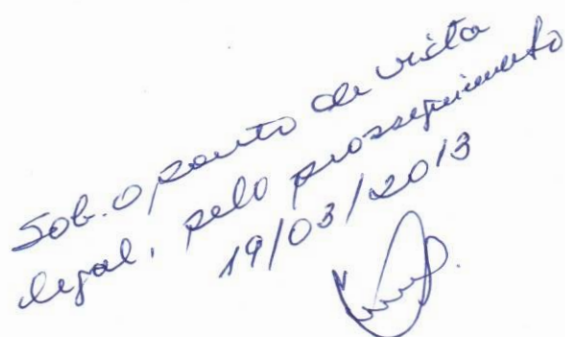 Sob. o ponto de vista
legal, pelo prosseguimento
19/03/2013